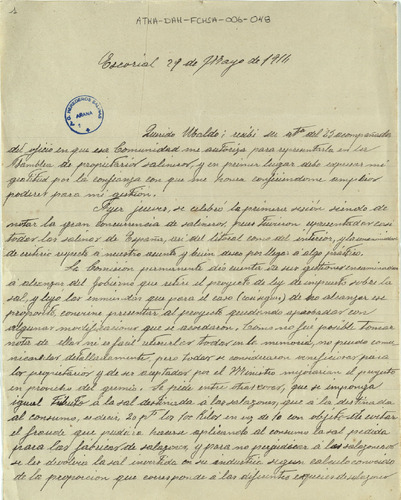 ATHA-DAH-FCHSA-006-048
Escorial 29 de Mayo de 1914
ARANA
Querido Ubaldo: recibí su del 25 acompañada
del oficio en que esa Comunidad me autoriza para representarla en la
Asamblea de propietarios salineros, y en primer lugar debo expresar mi
gratitud por la confianza con que me honra confiriéndome amplios
poderes para mi gestión.
Ayer jueves, se celebró la primera sesión siendo de
notar la gran concurrencia de salineros, pues tuvieron representación casi
todas las salinas de España, así del litoral como del interior,
de criterio respecto a nuestro asunto y buen deseo por llegar a algo práctico.
La Comisión permanente dió cuenta de sus gestiones encaminadas
a alcanzar del Gobierno que retire el proyecto de ley de impuesto sobre la
sal, y leyó las enmiendas que para el caso de no alcanzar ese
propósito, conviene presentar al proyecto quedando aprobadas con
algunas modificaciones que se acordaron. Como no fué posible tomar
nota de ellas ni es fácil retenerlas todas en la memoria, no puedo comu-
nicarlas detalladamente, pero todas se consideraron beneficiosas para
los propietarios y de ser aceptadas por el Ministro mejorarían el proyecto
en provecho del gremio. Se pide entre otras cosas, que se imponga
igual tributo a la sal destinada a las salazones, que a la destinada
al consumo, es decir 20 los 100 kilos en vez de 10 con objeto de evitar
el fraude que pudiera hacerse aplicando al consumo la sal pedida
para las fábricas de salazones, y para no perjudicar a los salazoneros
se les devuelva la sal invertida en su industria según cálculo convenido
de la proporción que corresponde a las diferentes especies de salazones